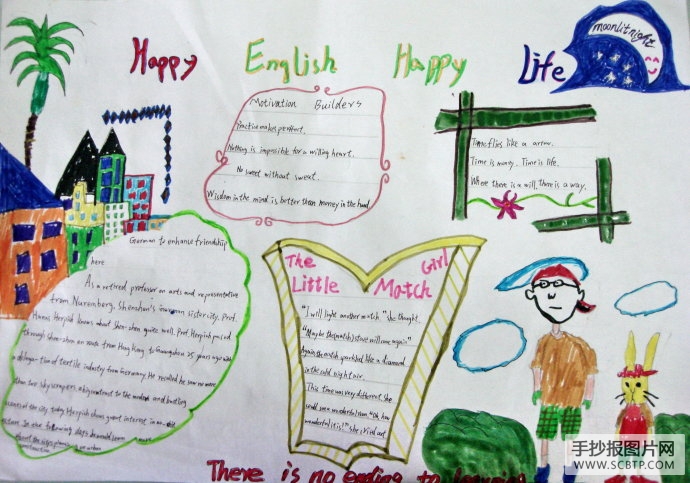 Happy English Happy Life
moonlitnight
Motivation Builders
Practice makes perfect.
Nothing is impossible for a willing heart.
No sweet without sweat.
Wisdom in the mind is better than money in the hand
Time flies like a arrow.
Time is money. Time is life.
Where there is a will, There is a way.
German to enhance friendship
here
As a retired professor on arts and representative
from Nuremberg, Shenzhen's sister city, Prof.
Hans Herpich knows about Shen zhen quite well. Prof. Herpich passed
through Shen zhen en route from Hong Kong to Guangzhou 25 years ago with
a delegation of textile industry from Germany. He recalled he saw no more
than two skyscrapers, a big contrast to the modern and bustling
scenes of the city today. Herpich shows great interest in
In the following days he would learn more
about the city's planning on urban
construction
The Little Match Girl
"I will light another match," she thought.
"Maybe the match stove will come again"
Again the match sparkled like a diamond
in the cold night air.
This time was very different. She
could see a wonderful room "Oh, how
wonderful it is!" she cried out
There is no ending to learning
手抄报图片网
WWW.SCBTP.COM